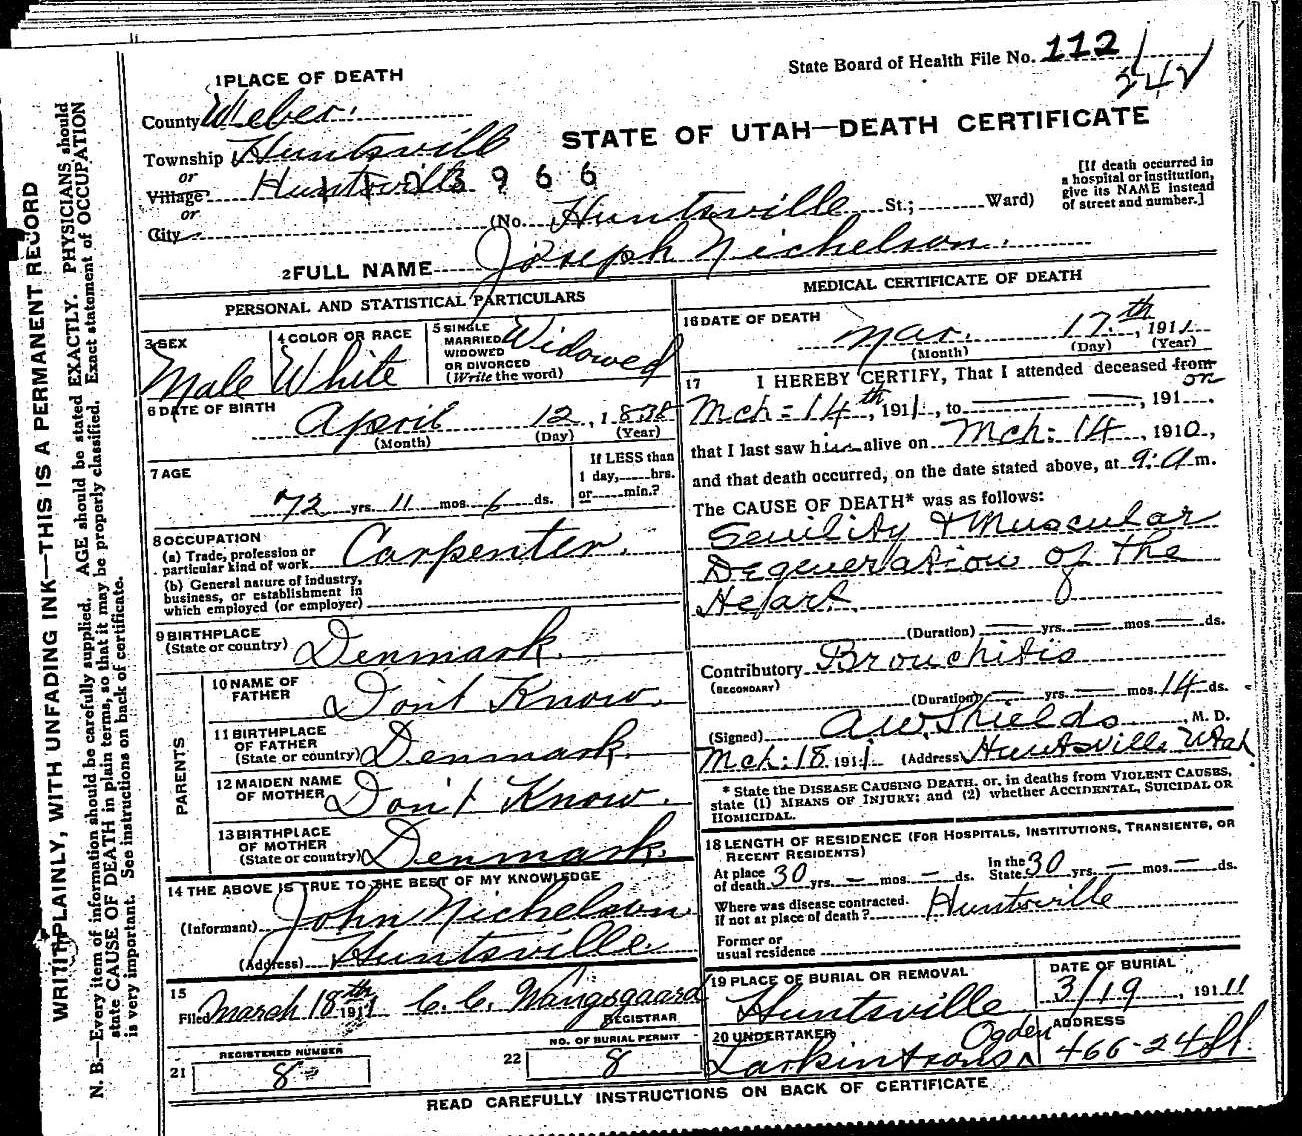 State Board of Health File No. 112
242
1 PLACE OF DEATH
County Weber.
STATE OF UTAH—DEATH CERTIFICATE
Township Huntsville
or
Village Huntsville
1103966
or
City
(No. Huntsville St.; Ward)
[If death occurred in
a hospital or institution,
give its NAME instead
of street and number.]
2 FULL NAME Joseph Nichelson.
PERSONAL AND STATISTICAL PARTICULARS
3 SEX
Male
4 COLOR OR RACE
White
5 SINGLE
MARRIED
WIDOWED
OR DIVORCED
(Write the word)
Widowed
6 DATE OF BIRTH
April 12, 1838
(Month) (Day) (Year)
7 AGE
72 yrs. 11 mos. 6 ds.
If LESS than
1 day, hrs.
or min.?
8 OCCUPATION
(a) Trade, profession or
particular kind of work
Carpenter.
(b) General nature of industry,
business, or establishment in
which employed (or employer)
9 BIRTHPLACE
(State or country) Denmark.
PARENTS
10 NAME OF
FATHER Don't Know.
11 BIRTHPLACE
OF FATHER
(State or country) Denmark.
12 MAIDEN NAME
OF MOTHER Don't Know.
13 BIRTHPLACE
OF MOTHER
(State or country) Denmark.
14 THE ABOVE IS TRUE TO THE BEST OF MY KNOWLEDGE
(Informant) John Nichelson
(Address) Huntsville.
15
Filed March 18th 1911 C. C. Wangsgaard
REGISTRAR
21 REGISTERED NUMBER
8
22 NO. OF BURIAL PERMIT
8
MEDICAL CERTIFICATE OF DEATH
16 DATE OF DEATH
Mar. 17th, 1911
(Month) (Day) (Year)
17 I HEREBY CERTIFY, That I attended deceased from
on
Mch = 14th, 1911, to — —, 191 .
that I last saw him alive on Mch: 14, 1910,
and that death occurred, on the date stated above, at 9:a m.
The CAUSE OF DEATH* was as follows:
Senility & Muscular
Degeneration of the
Heart.
(Duration) — yrs. — mos. — ds.
Contributory Bronchitis
(SECONDARY)
(Duration) — yrs. — mos. 14 ds.
(Signed) A.W. Shields, M. D.
Mch: 18, 1911. (Address) Huntsville Utah
* State the DISEASE CAUSING DEATH, or, in deaths from VIOLENT CAUSES,
state (1) MEANS OF INJURY; and (2) whether ACCIDENTAL, SUICIDAL OR
HOMICIDAL.
18 LENGTH OF RESIDENCE (FOR HOSPITALS, INSTITUTIONS, TRANSIENTS, OR
RECENT RESIDENTS)
At place
of death 30 yrs. — mos. — ds.
In the
State 30 yrs. — mos. — ds.
Where was disease contracted.
If not at place of death? Huntsville
Former or
usual residence
19 PLACE OF BURIAL OR REMOVAL
Huntsville
DATE OF BURIAL
3/19, 1911
20 UNDERTAKER
Larkin & sons Ogden
ADDRESS
466-24 St.
READ CAREFULLY INSTRUCTIONS ON BACK OF CERTIFICATE
WRITE PLAINLY, WITH UNFADING INK—THIS IS A PERMANENT RECORD
N. B.—Every item of information should be carefully supplied. AGE should be stated EXACTLY. PHYSICIANS should
state CAUSE OF DEATH in plain terms, so that it may be properly classified. Exact statement of OCCUPATION
is very important. See instructions on back of certificate.